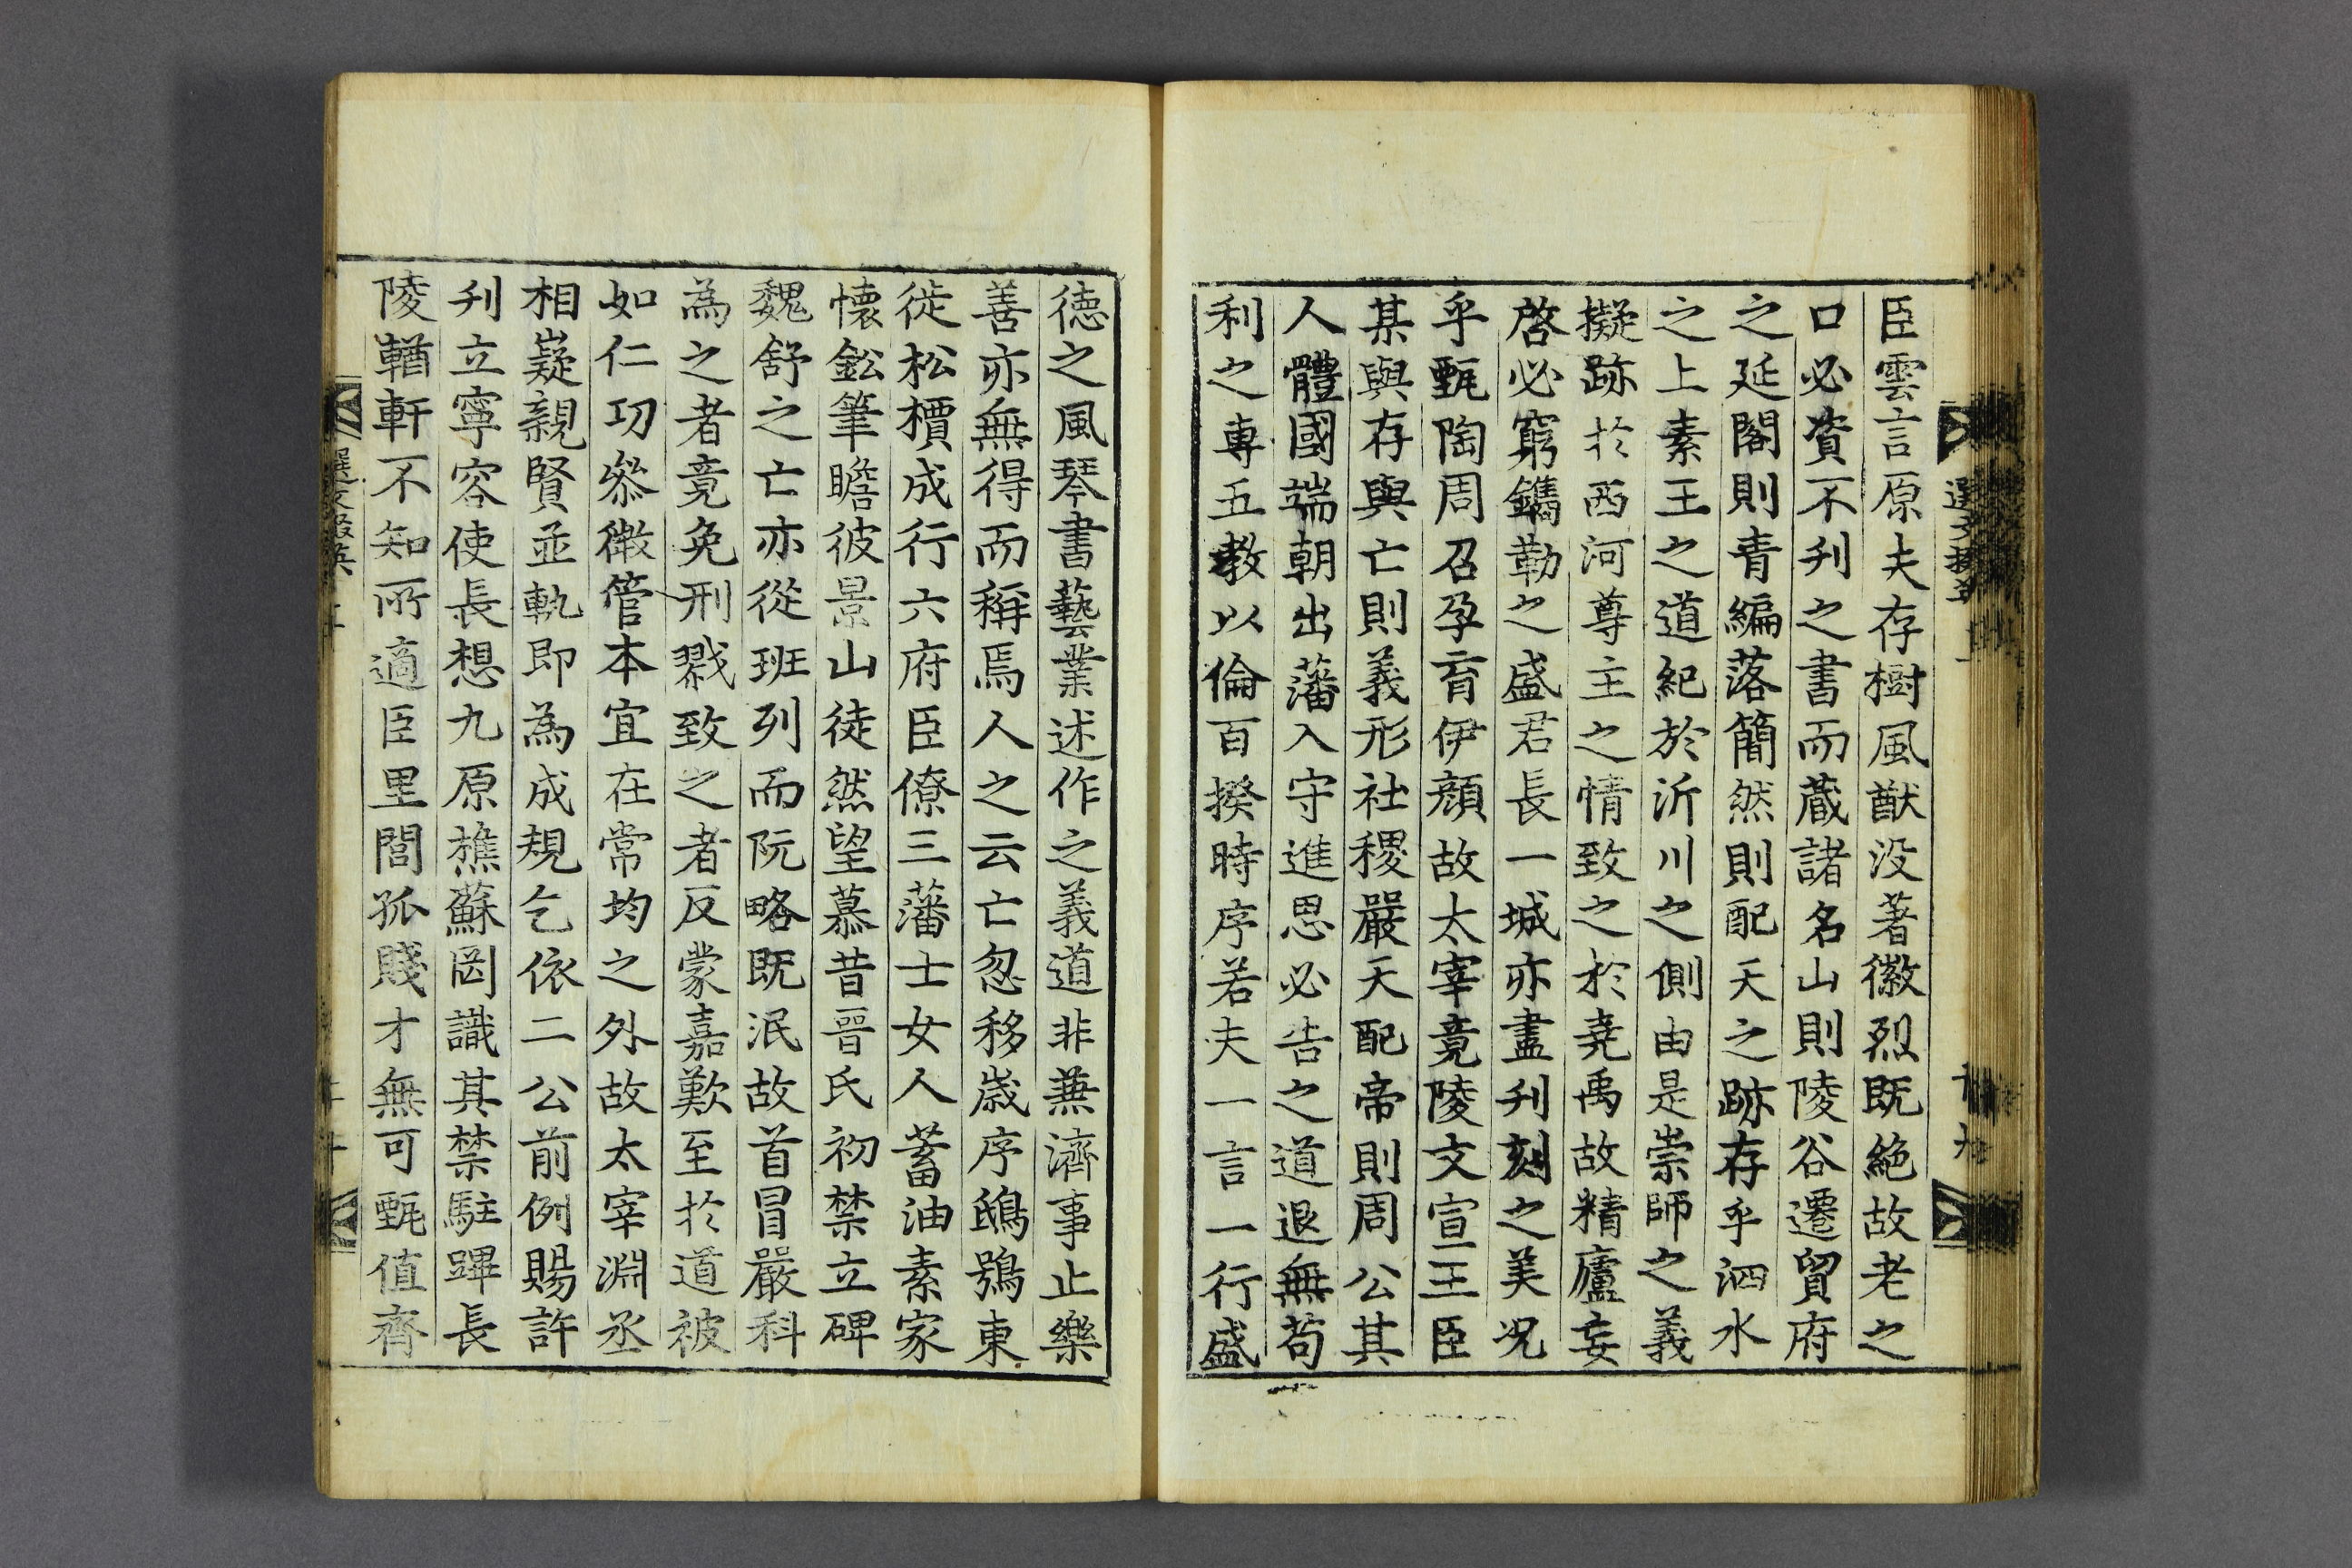 臣雲言原夫存樹風猷没著徽烈既絶故老之
口必資不刋之書而藏諸名山則陵谷遷貿府
之延閣則青編落簡然則配天之跡存乎泗水
之上素王之道紀於沂川之側由是崇師之義
擬跡於西河尊主之情致之於堯禹故精廬妄
啓必窮鐫勒之盛君長一城亦盡刋刻之美况
乎甄陶周召孕育伊顔故太宰竟陵文宣王臣
某與存與亡則義形社稷嚴天配帝則周公其
人體國端朝出藩入守進思必告之道退無苟
利之專五教以倫百揆時序若夫一言一行盛
徳之風琴書藝業述作之義道非兼濟事止樂
善亦無得而稱焉人之云亡忽移歳序鴟鴞東
徙松檟成行六府臣僚三藩士女人蓄油素家
懐鈆筆瞻彼景山徒然望慕昔晋氏初禁立碑
魏舒之亡亦從班列而阮略既泯故首冒嚴科
為之者竟免刑戮致之者反蒙嘉歎至於道被
如仁功叅微管本宜在常均之外故太宰淵丞
相嶷親賢並軌即為成規乞依二公前例賜許
刋立寧容使長想九原樵蘇罔識其禁駐蹕長
陵輶軒不知所適臣里閭孤賤才無可甄值齊